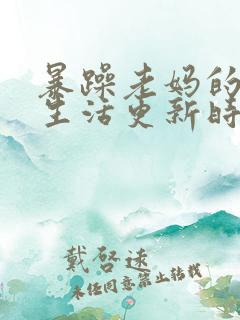 暴躁老妈的
生活更新时
戴啓速
未经同意禁止转载